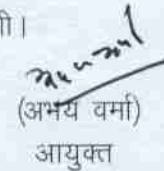 ी।
(अभय वर्मा)
आयुक्त